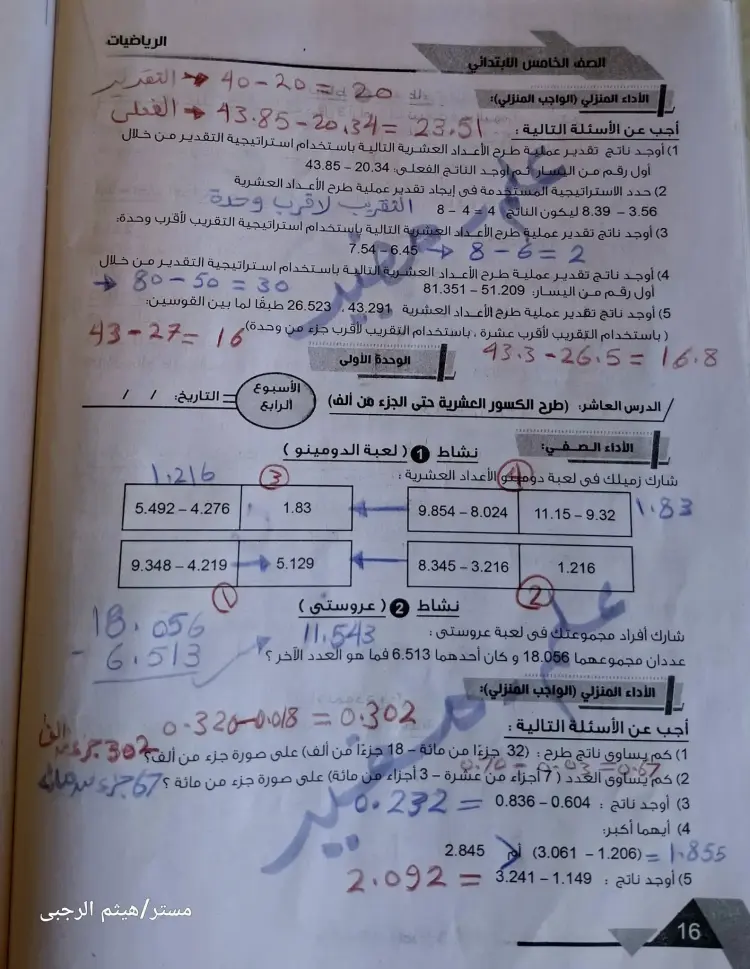 الرياضيات
الصف الخامس الابتدائي
الأداء المنزلي (الواجب المنزلي):
التقدير → 40 – 20 = 20
الفعلى → 43.85 – 20.34 = 23.51
أجب عن الأسئلة التالية :
1) أوجد ناتج تقدير عملية طرح الأعداد العشرية التالية باستخدام استراتيجية التقدير من خلال
أول رقم من اليسار ثم أوجد الناتج الفعلي: 20.34 – 43.85
2) حدد الاستراتيجية المستخدمة في إيجاد تقدير عملية طرح الأعداد العشرية
3.56 – 8.39 ليكون الناتج 4 = 4 – 8 التقريب لاقرب وحدة
3) أوجد ناتج تقدير عملية طرح الأعداد العشرية التالية باستخدام استراتيجية التقريب لأقرب وحدة:
7.54 – 6.45 → 8 – 6 = 2
4) أوجد ناتج تقدير عملية طرح الأعداد العشرية التالية باستخدام استراتيجية التقدير من خلال
أول رقم من اليسار: 51.209 – 81.351
80 – 50 = 30 →
5) أوجد ناتج تقدير عملية طرح الأعداد العشرية 43.291 ، 26.523 طبقًا لما بين القوسين:
( باستخدام التقريب لأقرب عشرة ، باستخدام التقريب لأقرب جزء من وحدة)
43 – 27 = 16
43.3 – 26.5 = 16.8
الوحدة الأولى
الدرس العاشر: (طرح الكسور العشرية حتى الجزء من ألف)
الأسبوع الرابع
التاريخ: / /
الأداء الصفي:
نشاط 1 ( لعبة الدومينو )
شارك زميلك في لعبة دومينو الأعداد العشرية :
1.216
3
4
5.492 – 4.276 1.83
9.854 – 8.024 11.15 – 9.32 1.83
9.348 – 4.219 5.129
8.345 – 3.216 1.216
1
2
نشاط 2 ( عروستي )
شارك أفراد مجموعتك في لعبة عروستي :
11.543
عددان مجموعهما 18.056 و كان أحدهما 6.513 فما هو العدد الآخر ؟
18.056
– 6.513
الأداء المنزلي (الواجب المنزلي):
0.320 – 0.018 = 0.302
أجب عن الأسئلة التالية :
1) كم يساوي ناتج طرح : (32 جزءًا من مائة – 18 جزءًا من ألف) على صورة جزء من ألف؟
302 جزء من ألف
0.70 – 0.03 = 0.67
2) كم يساوي العدد ( 7 أجزاء من عشرة – 3 أجزاء من مائة) على صورة جزء من مائة ؟
67 جزء من مائة
3) أوجد ناتج : 0.604 – 0.836 = 0.232
4) أيهما أكبر:
(3.061 – 1.206) أم 2.845
= 1.855
<
5) أوجد ناتج : 1.149 – 3.241 = 2.092
على صفير
على صفير
مستر/هيثم الرجبى
16